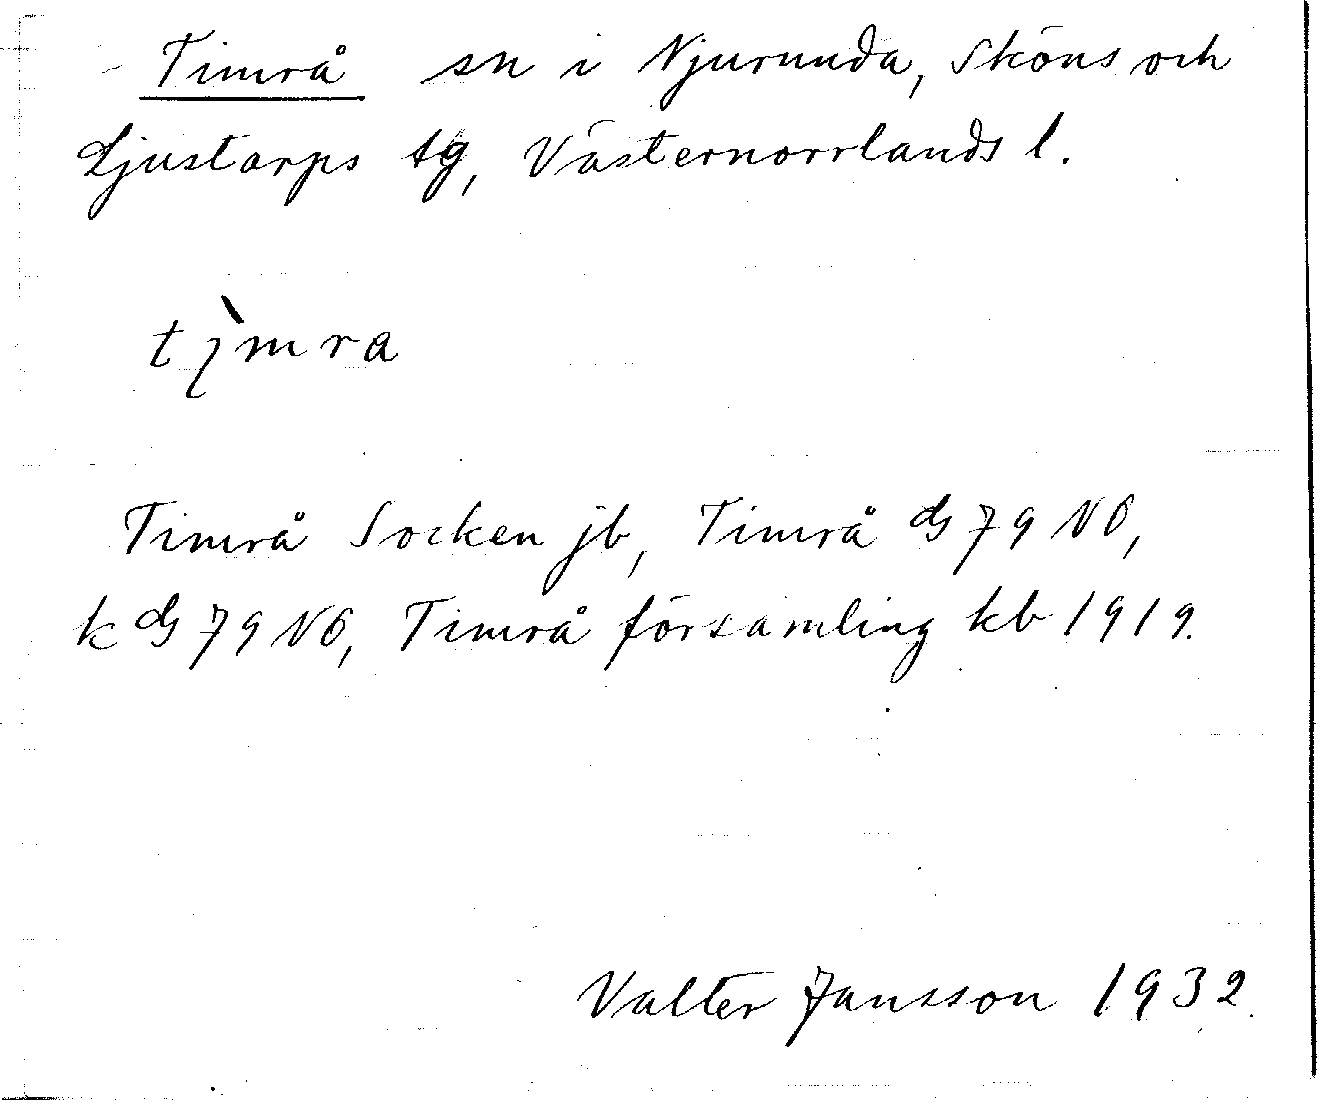 Timrå sn i Njurunda, Sköns och
Ljustorps tg, Västernorrlands l.
tìmra
Timrå Socken jb, Timrå ds 79 NO,
k ds 79 NO, Timrå församling kb 1919.
Valter Jansson 1932.